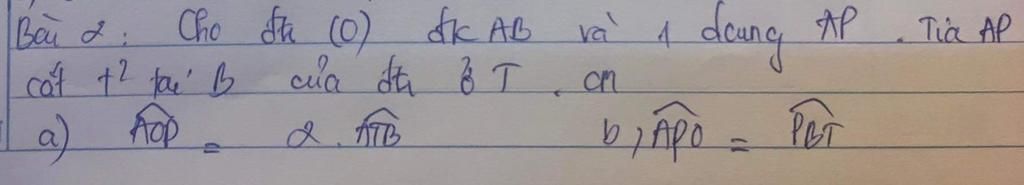 Bài 2: Cho đtr (O) đk AB và 1 dcung AP. Tia AP
cắt t² tại B của đtr ở T. cm
a) AOP = 2. ATB b, APO = PBT